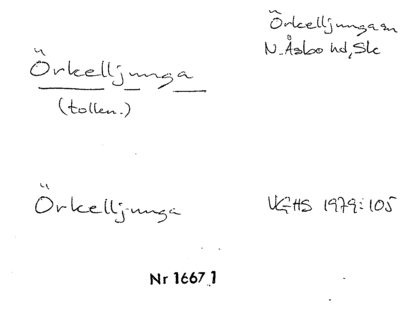 Örkelljunga
(tollen.)
Örkelljunga sn
N. Åsbo hd, Sk
Örkelljunga
VGHS 1979:105
Nr 1667 1